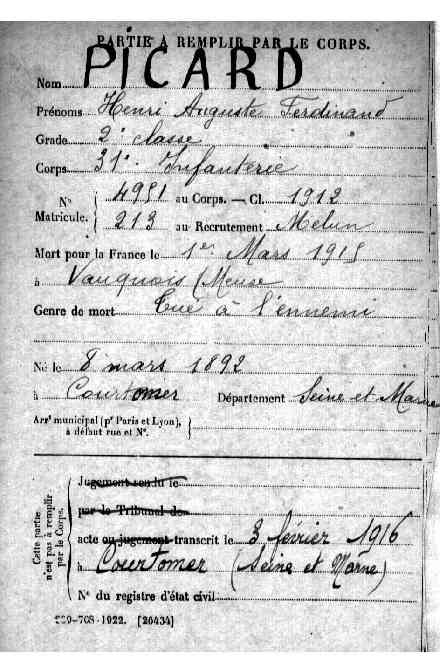 PARTIE À REMPLIR PAR LE CORPS.
Nom PICARD
Prénoms Henri Auguste Ferdinand
Grade 2e classe
Corps 31e Infanterie
Nº Matricule. { 4951 au Corps. — Cl. 1912
213 au Recrutement Melun
Mort pour la France le 1er Mars 1915
à Vauquois (Meuse
Genre de mort Tué à l'ennemi
Né le 8 mars 1892
à Courtomer Département Seine et Marne
Arrt municipal (pr Paris et Lyon), à défaut rue et Nº. }
Cette partie n'est pas à remplir par le Corps.
Jugement rendu le
par le Tribunal de
acte ou jugement transcrit le 3 février 1916
à Courtomer (Seine et Marne)
Nº du registre d'état civil
-708-1922. [26434]